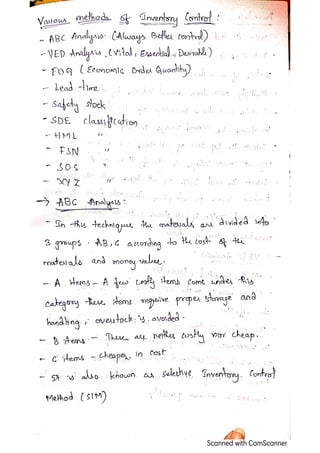 Various methods of Inventory Control :
- ABC Analysis (Always Better Control)
- VED Analysis (Vital, Essential, Desirable)
- EOQ (Economic Order Quantity)
- Lead -time
- Safety stock
- SDE classification
- HML "
- FSN "
- SOS "
- XYZ "
→ ABC Analysis :
- In this technique the materials are divided into
3 groups AB, C according to the cost of the
materials and money value.
- A items - A few costly items come under this
category these items require proper storage and
handling, overstock is avoided.
- B items - These are neither costly nor cheap.
- C items - cheaper in cost
- It is also known as Selective Inventory Control
Method (SIM)
Scanned with CamScanner